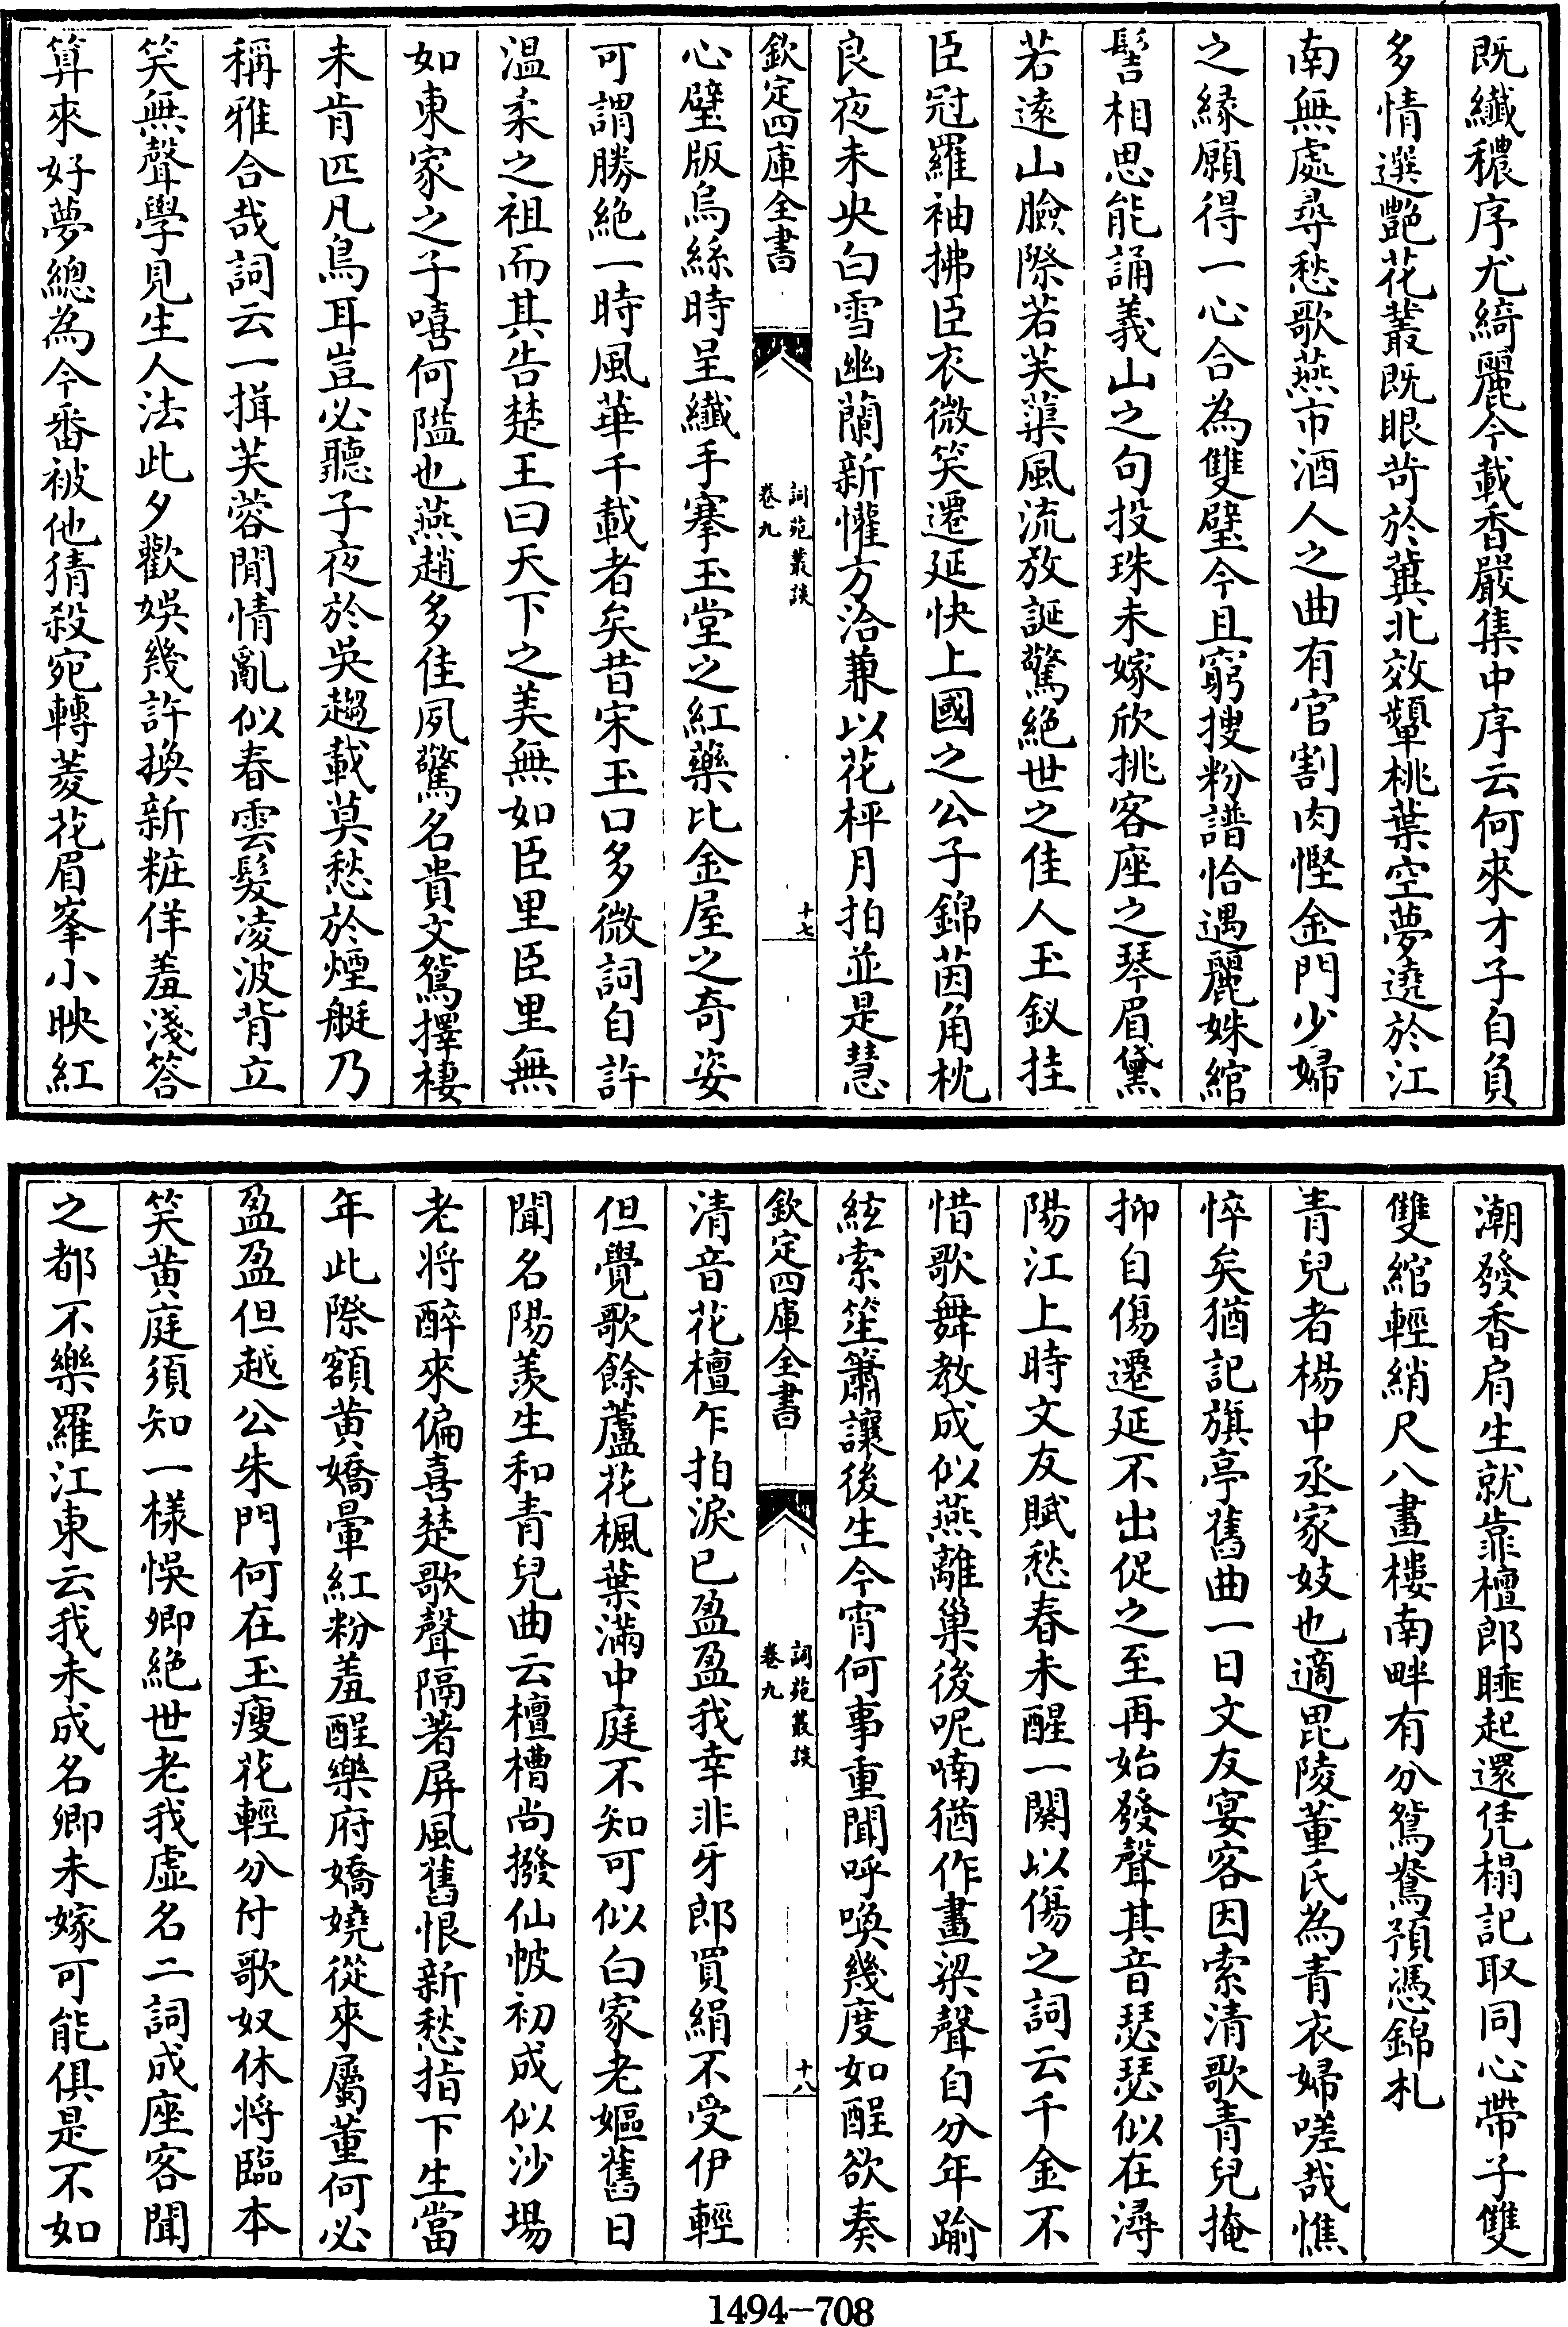 既纖穠序尤綺麗今載香嚴集中序云何來才子自負
多情選艷花叢既眼苛於冀北效顰桃葉空夢遶於江
南無處尋愁歌燕市酒人之曲有官割肉慳金門少婦
之緣願得一心合為雙璧今且窮搜粉譜恰遇麗姝綰
髻相思能誦義山之句投珠未嫁欣挑客座之琴眉黛
若遠山臉際若芙蕖風流放誕驚絕世之佳人玉釵挂
臣冠羅袖拂臣衣微笑遷延快上國之公子錦茵角枕
良夜未央白雪幽蘭新懽方洽兼以花枰月拍並是慧
欽定四庫全書
詞苑叢談
卷九
十七
心壁版烏絲時呈纖手搴玉堂之紅藥比金屋之奇姿
可謂勝絕一時風華千載者矣昔宋玉口多微詞自許
溫柔之祖而其告楚王曰天下之美無如臣里臣里無
如東家之子嘻何隘也燕趙多佳夙驚名貴文鴛擇棲
未肯匹凡鳥耳豈必聽子夜於吳趨載莫愁於煙艇乃
稱雅合哉詞云一揖芙蓉閒情亂似春雲髮凌波背立
笑無聲學見生人法此夕歡娛幾許換新粧佯羞淺答
算來好夢總為今番被他猜殺宛轉菱花眉峯小映紅
潮發香肩生就靠檀郎睡起還凭榻記取同心帶子雙
雙綰輕綃尺八畫樓南畔有分鴛鴦預憑錦札
青兒者楊中丞家妓也適毘陵董氏為青衣婦嗟哉憔
悴矣猶記旗亭舊曲一日文友宴客因索清歌青兒掩
抑自傷遷延不出促之至再始發聲其音瑟瑟似在潯
陽江上時文友賦愁春未醒一闋以傷之詞云千金不
惜歌舞教成似燕離巢後呢喃猶作畫梁聲自分年踰
絃索笙簫讓後生今宵何事重聞呼喚幾度如酲欲奏
欽定四庫全書
詞苑叢談
卷九
十八
清音花檀乍拍淚已盈盈我幸非牙郎買絹不受伊輕
但覺歌餘蘆花楓葉滿中庭不知可似白家老嫗舊日
聞名陽羨生和青兒曲云檀槽尚撥仙帔初成似沙場
老將醉來偏喜楚歌聲隔著屏風舊恨新愁指下生當
年此際額黃嬌暈紅粉羞酲樂府嬌嬈從來屬董何必
盈盈但越公朱門何在玉瘦花輕分付歌奴休將臨本
笑黃庭須知一樣悞卿絕世老我虛名二詞成座客聞
之都不樂羅江東云我未成名卿未嫁可能俱是不如
1494-708